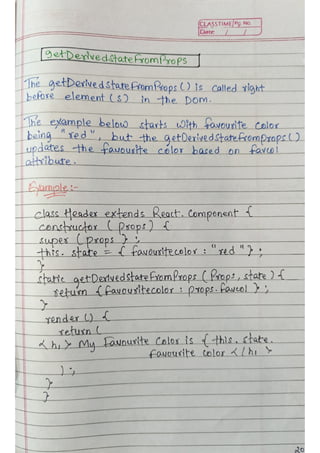 CLASSTIME Pg. No.
Date / /
getDerivedStateFromProps
The getDerivedStateFromProps() is called right
before element(s) in the Dom.
The example below starts with favourite color
being "red", but the getDerivedStateFromProps()
updates the favourite color based on favcol
attribute.
Example:-
class Header extends React. Component {
constructor (props) {
super (props);
this. state = { favouritecolor : "red" };
}
static getDerivedStateFromProps (Props, state) {
return {favouritecolor : props.favcol };
}
render () {
return (
<h1> My Favourite Color is {this. state.
favourite color </h1>
);
}
}
20